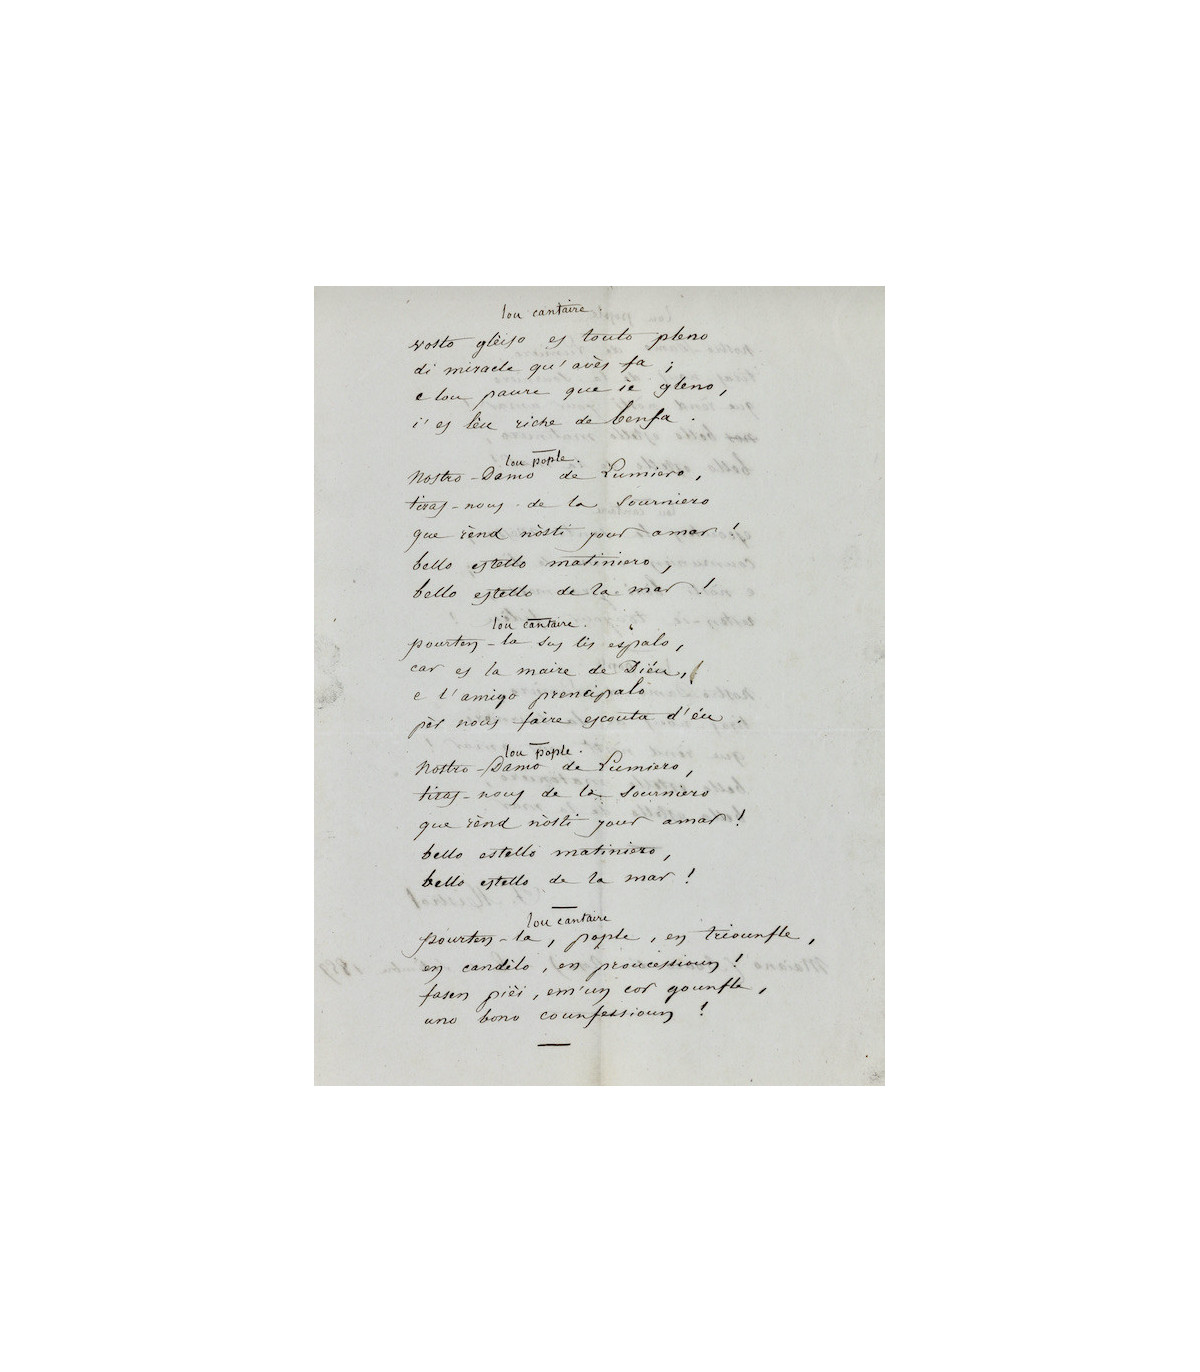 lou cantaire.
vosto glèiso es touto pleno
di miracle qu'avès fa ;
e lou paure que ie gleno,
i'es lèu riche de benfa.
lou pople.
Nostro-Damo de Lumiero,
tiras-nous de la sourniero
que rènd nòsti jour amar !
bello estello matiniero,
bello estello de la mar !
lou cantaire.
pourten-la sus lis espalo,
car es la maire de Diéu,
e l'amigo prencipalo
pèr nous faire escouta d'éu.
lou pople.
Nostro-Damo de Lumiero,
tiras-nous de la sourniero
que rènd nòsti jour amar !
bello estello matiniero,
bello estello de la mar !
lou cantaire
pourten-la, pople, en triounfle,
en candèlo, en proucessioun !
fasen pièi, em'un cor gounfle,
uno bono counfessioun !